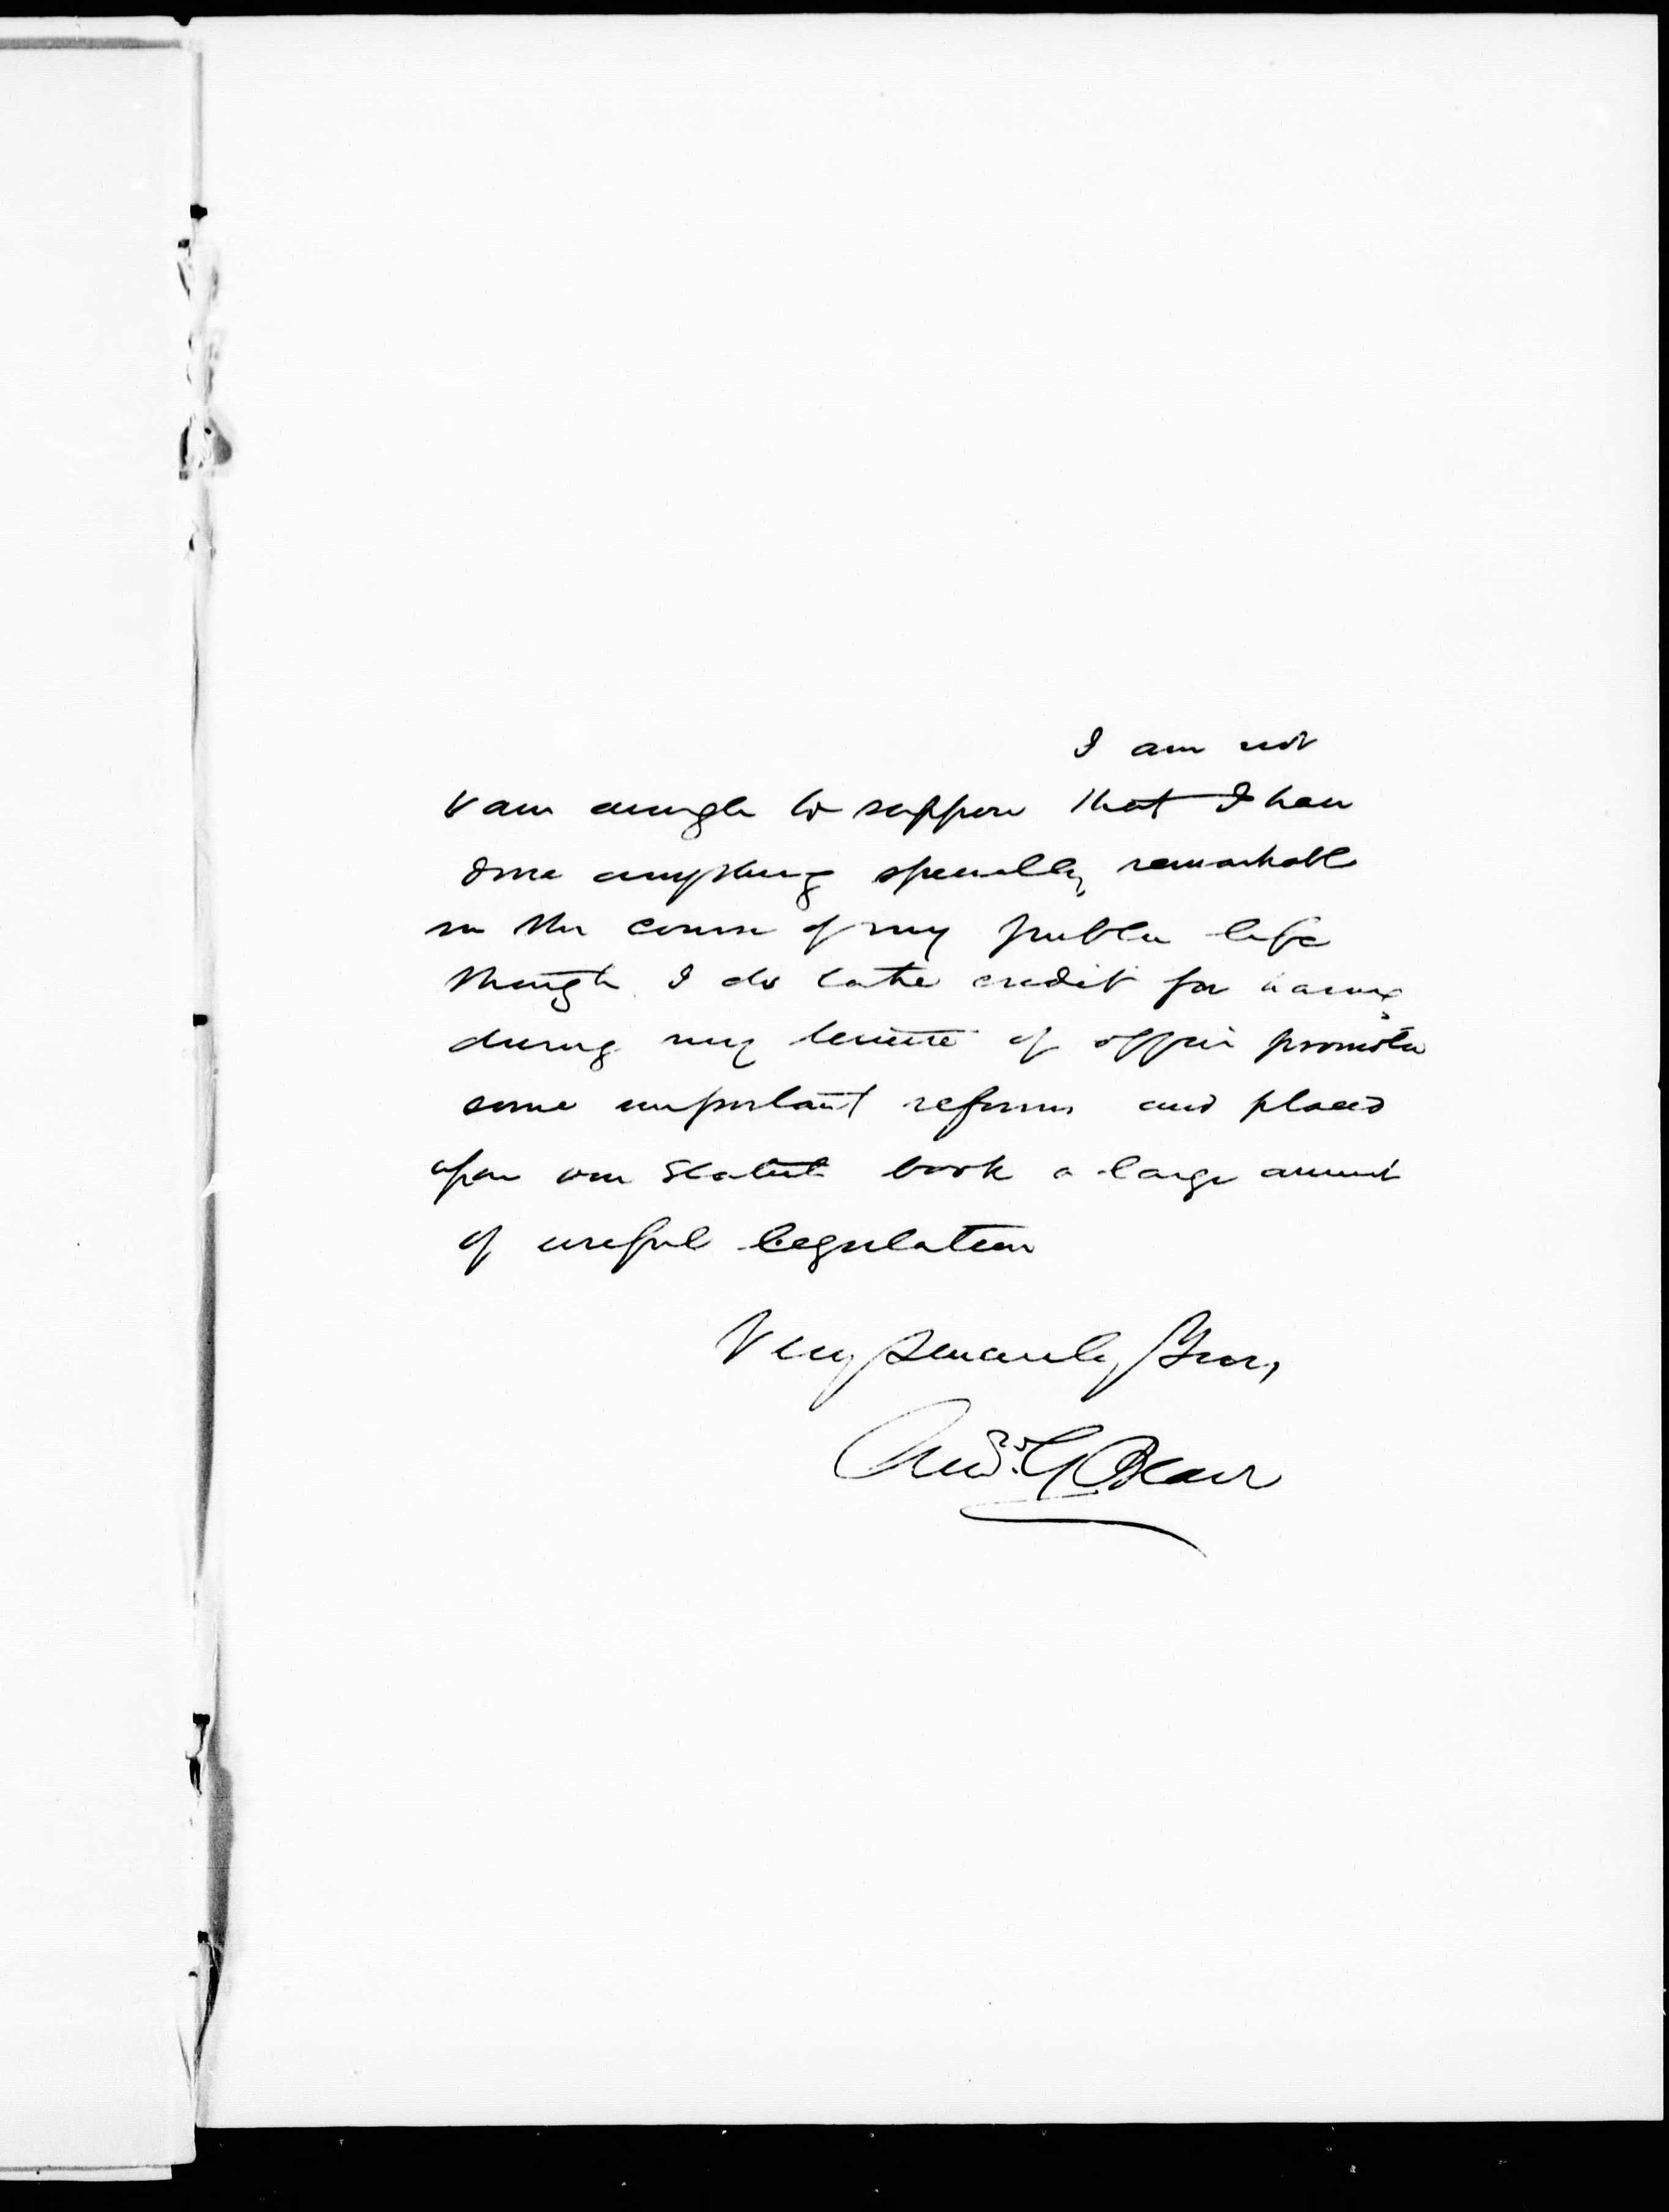 I am not
vain enough to suppose that I have
done anything specially remarkable
in the course of my public life
though I do take credit for having
during my tenure of office promoted
some important reforms and placed
upon our Statute book a large amount
of useful legislation
Very sincerely Yours
Andw. G Blair